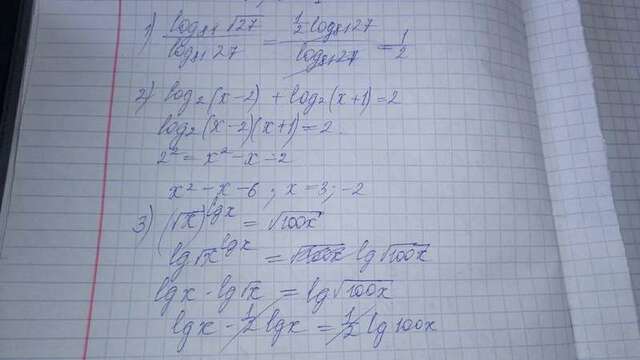 1) log₈₁√27 / log₈₁27 = ½ log₈₁27 / log₈₁27 = 1/2
2) log₂(x-2) + log₂(x+1) = 2
log₂(x-2)(x+1) = 2.
2² = x² - x - 2
x² - x - 6 ; x = 3 ; -2
3) (√x)^lgx = √100x
lg√x^lgx = lg√100x
lgx · lg√x = lg√100x
lgx · ½ lgx = ½ lg100x